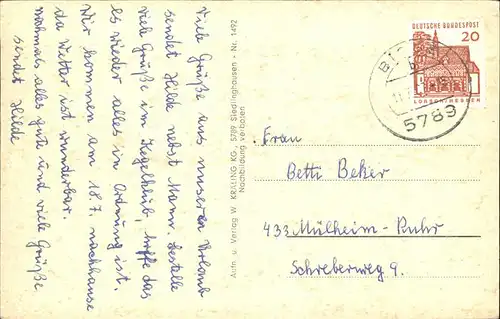 Viele Grüße aus unseren Urlaub
sendet Hilde nebst Mann. bestelle
viele Grüße im Kegelklub, hoffe das
es wieder alles in Ordnung ist.
Wir kommen am 18.7. nachhause
da Wetter ist wunderbar.
nochmals alles gute und viele Grüße
sendet Hilde
Autn. u. Verlag W. KRALING KG., 5789 Siedlinghausen · Nr. 1492
Nachbildung verboten
DEUTSCHE BUNDESPOST
20
LORSCH/HESSEN
5789
Frau
Betti Beker
433 Mülheim-Ruhr
Schreberweg 9.